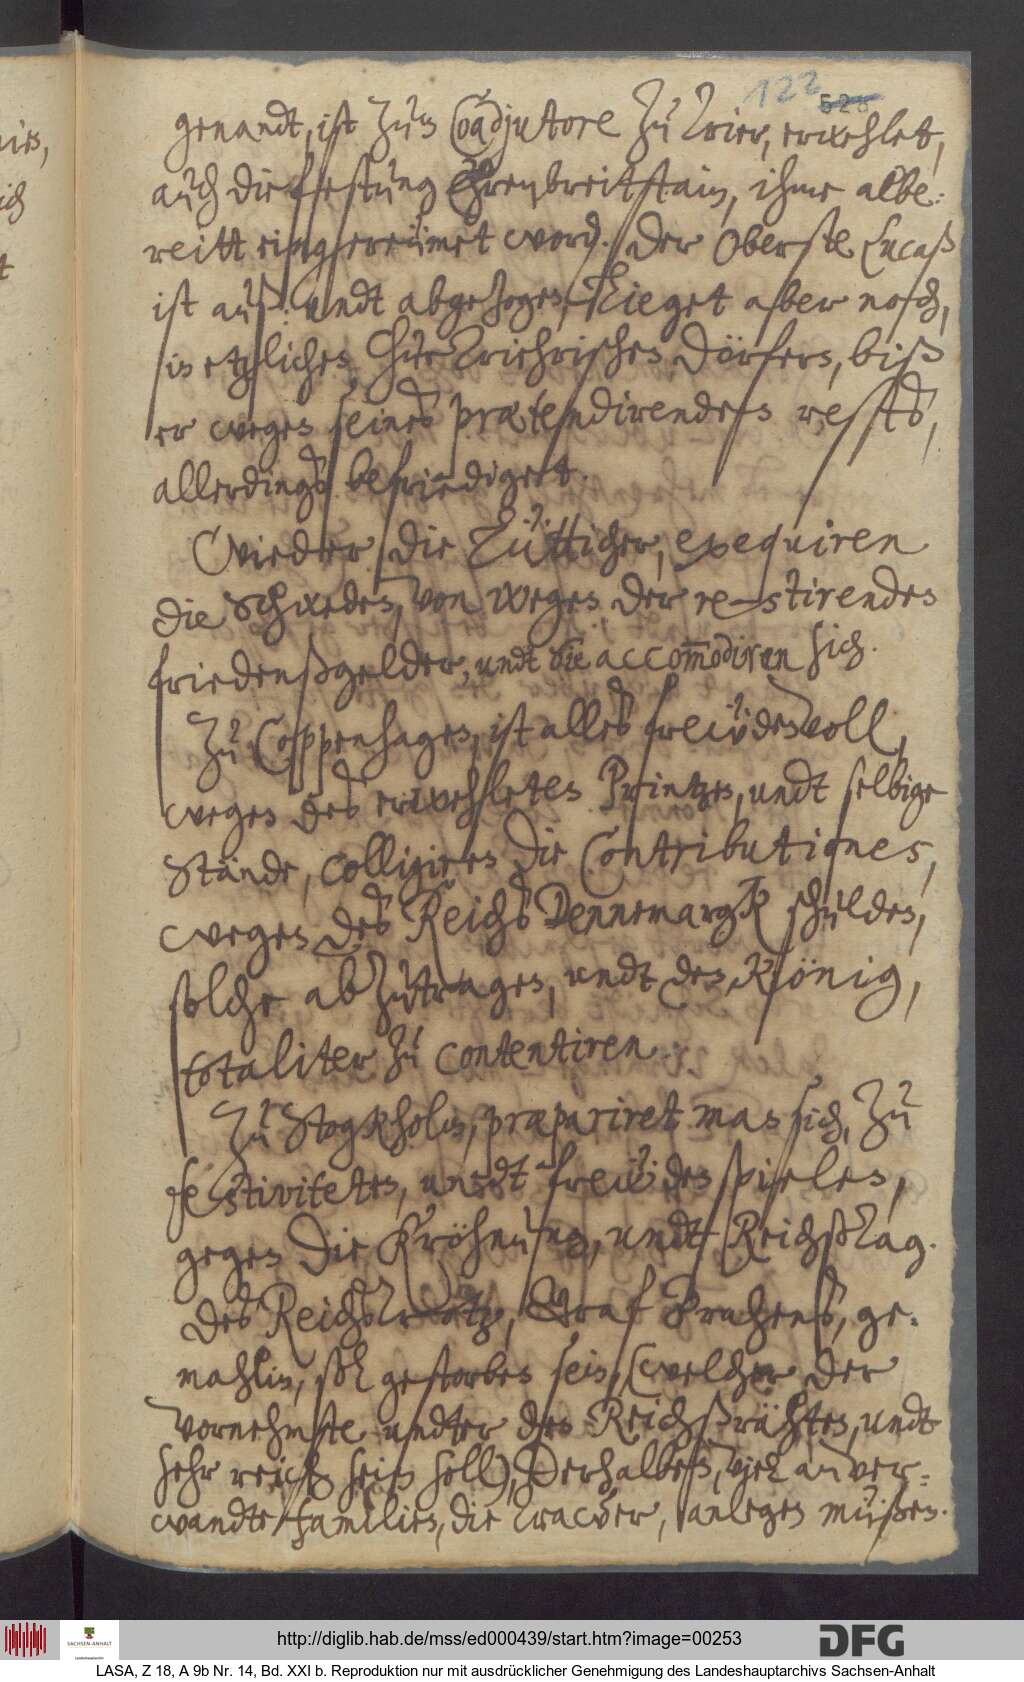 122
528
genandt, ist zum Coadjutore zu Trier, erwehlet,
auch die Festung Ehrenbreitstain, ihme albe-
reitt eingereümet word. Der Oberste Lucaß
ist auß: undt abgezogen, lieget aber noch,
in etzlichen ChurTriehrischen Dörfern, biß
er wegen seines prætendirenden rests,
allerdings befriediget.
Wieder die Lütticher, exequiren
die Schweden, von wegen, der restirenden
friedenßgelder, undt sie accom̄odiren sich.
Zu Coppenhagen, ist alles freüdenvoll,
wegen des erwehleten Printzen, undt selbige
Stände, colligiren die Contributiones,
wegen des Reichs Dennemargk schulden,
solche abzutragen, undt den König,
totaliter zu contentiren.
Zu Stogkholm, præpariret man sich, zu
festiviteten, undt freüdenspielen,
gegen die Kröhnung, undt Reichßtag.
Des Reichs Drotz, Graf Brahens, ge-
mahlin, soll gestorben sein, (welcher der
vornehmste undter den Reichßrähten, undt
sehr reich sein soll), Derhalben, viel anver-
wandte familien, die trawer, anlegen müßen.
http://diglib.hab.de/mss/ed000439/start.htm?image=00253
SACHSEN-ANHALT
Landeshauptarchiv
DFG
LASA, Z 18, A 9b Nr. 14, Bd. XXI b. Reproduktion nur mit ausdrücklicher Genehmigung des Landeshauptarchivs Sachsen-Anhalt